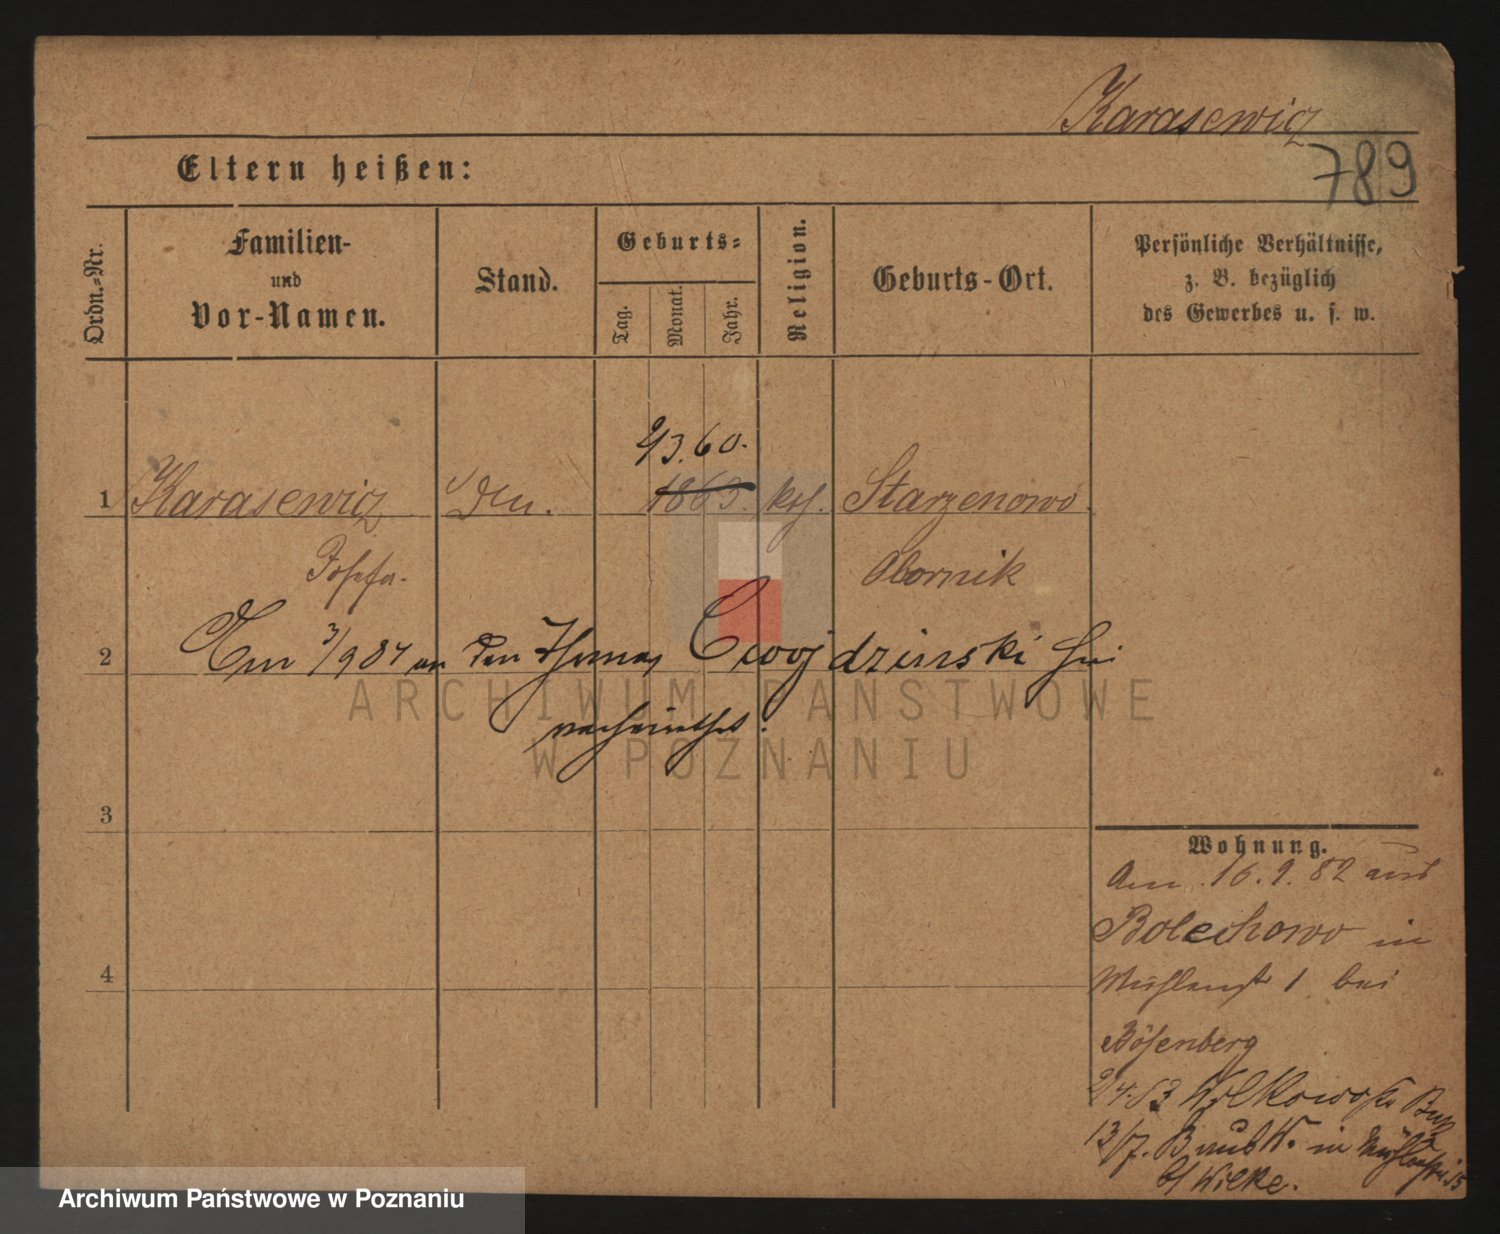 Karasewicz
789
Eltern heißen:
Ordn.-Nr.
Familien-
und
Vor-Namen.
Stand.
Geburts-
Tag.
Monat.
Jahr.
Religion.
Geburts-Ort.
Persönliche Verhältnisse,
z. B. bezüglich
des Gewerbes u. s. w.
2/3.60.
1 Karasewicz 1863. kth. Starzenowo
Josefa. Obornik
2 Am 3/9 84 an den Thomas Cwojdzinski hier
verheirathet.
ARCHIWUM PAŃSTWOWE
W POZNANIU
3
4
Wohnung.
Am 16.9.82 aus
Bolechowo in
Mühlenstr 1 bei
Bösenberg
2/4.83
13/7. in Mühlenstr. 15
b/ Wilke.
Archiwum Państwowe w Poznaniu